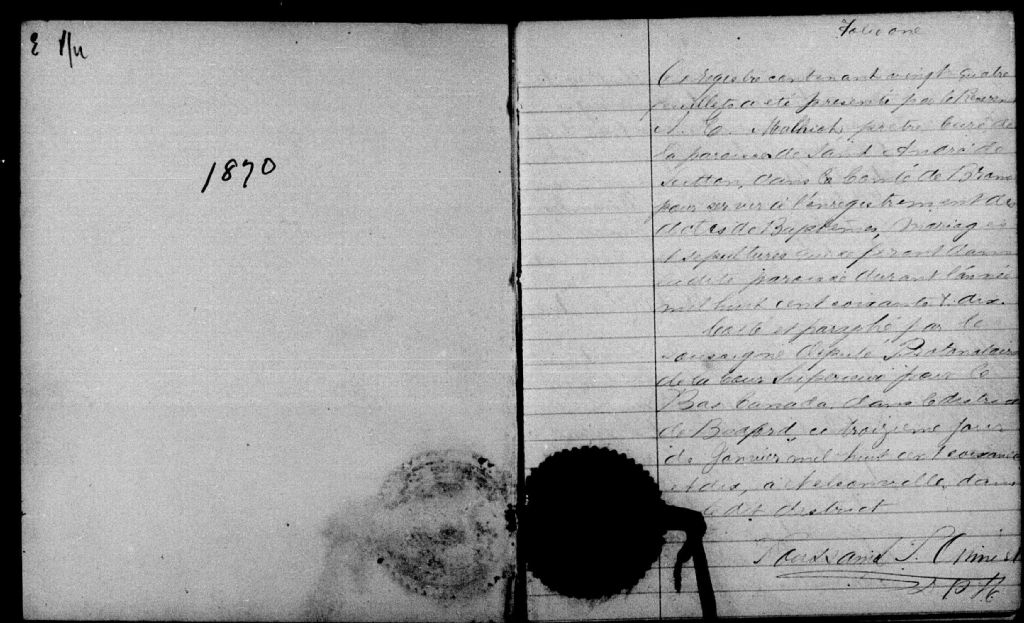 1870
Folio one
Ce registre contenant vingt quatre
feuillets a été presenté par le Reverend
prêtre curé de
la paroisse de Saint André de
Sutton, dans le Comté de Brome
pour servir à l'enregistrement des
actes de Baptêmes, Mariages
et sepultures qui se feront dans
la dite paroisse durant l'année
mil huit cent soixante & dix.
Coté et paraphé par le
soussigné député Protonotaire
de la Cour Superieure pour le
Bas Canada, dans le district
de Bedford, ce troizième jour
de Janvier mil huit cent soixante
et dix, à Nelsonville, dans
le dit district